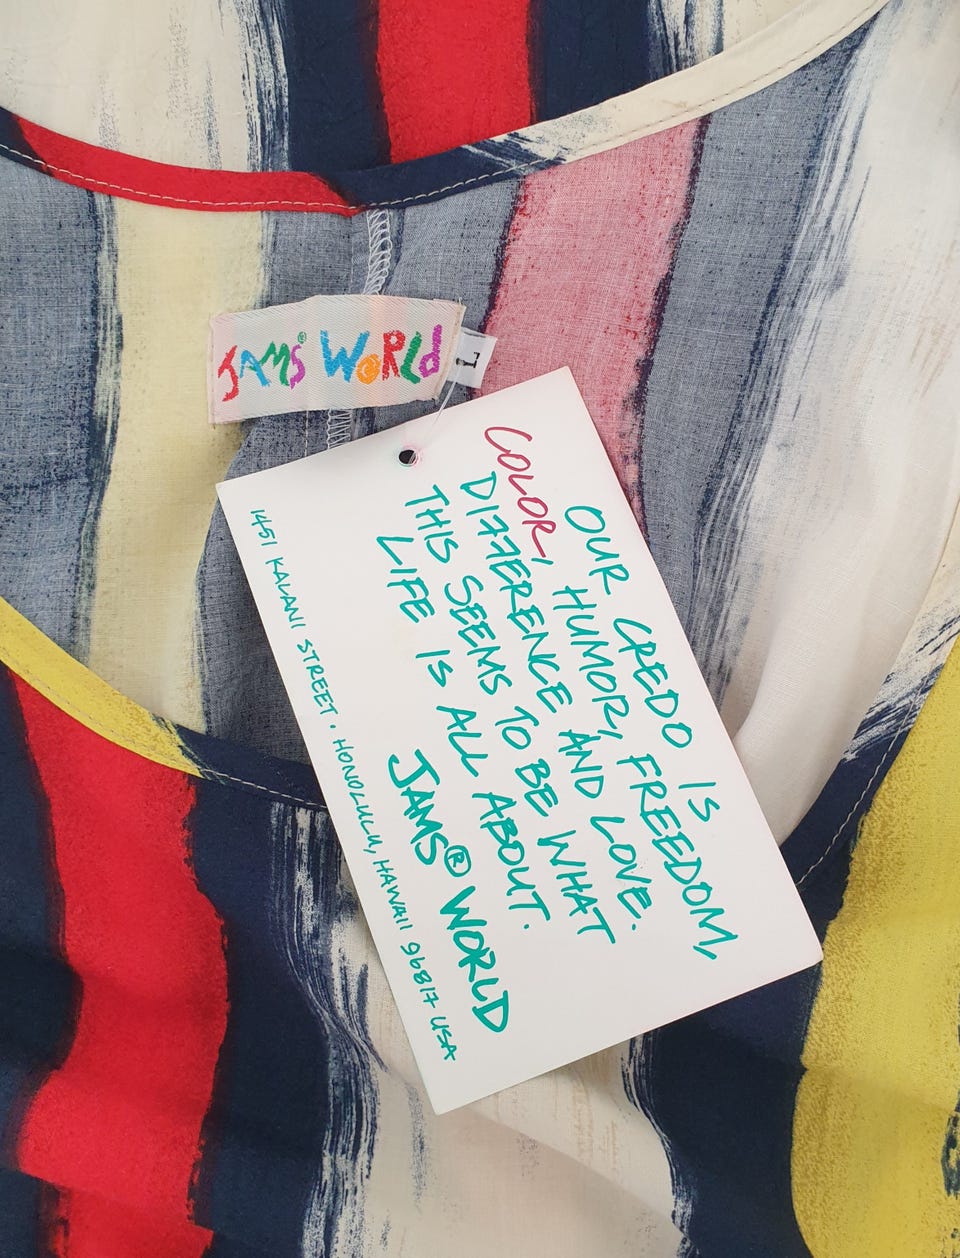 JAMS® WORLD
L
OUR CREDO IS
COLOR, HUMOR, FREEDOM,
DIFFERENCE AND LOVE.
THIS SEEMS TO BE WHAT
LIFE IS ALL ABOUT.
JAMS® WORLD
1451 KALANI STREET · HONOLULU, HAWAII 96817 USA